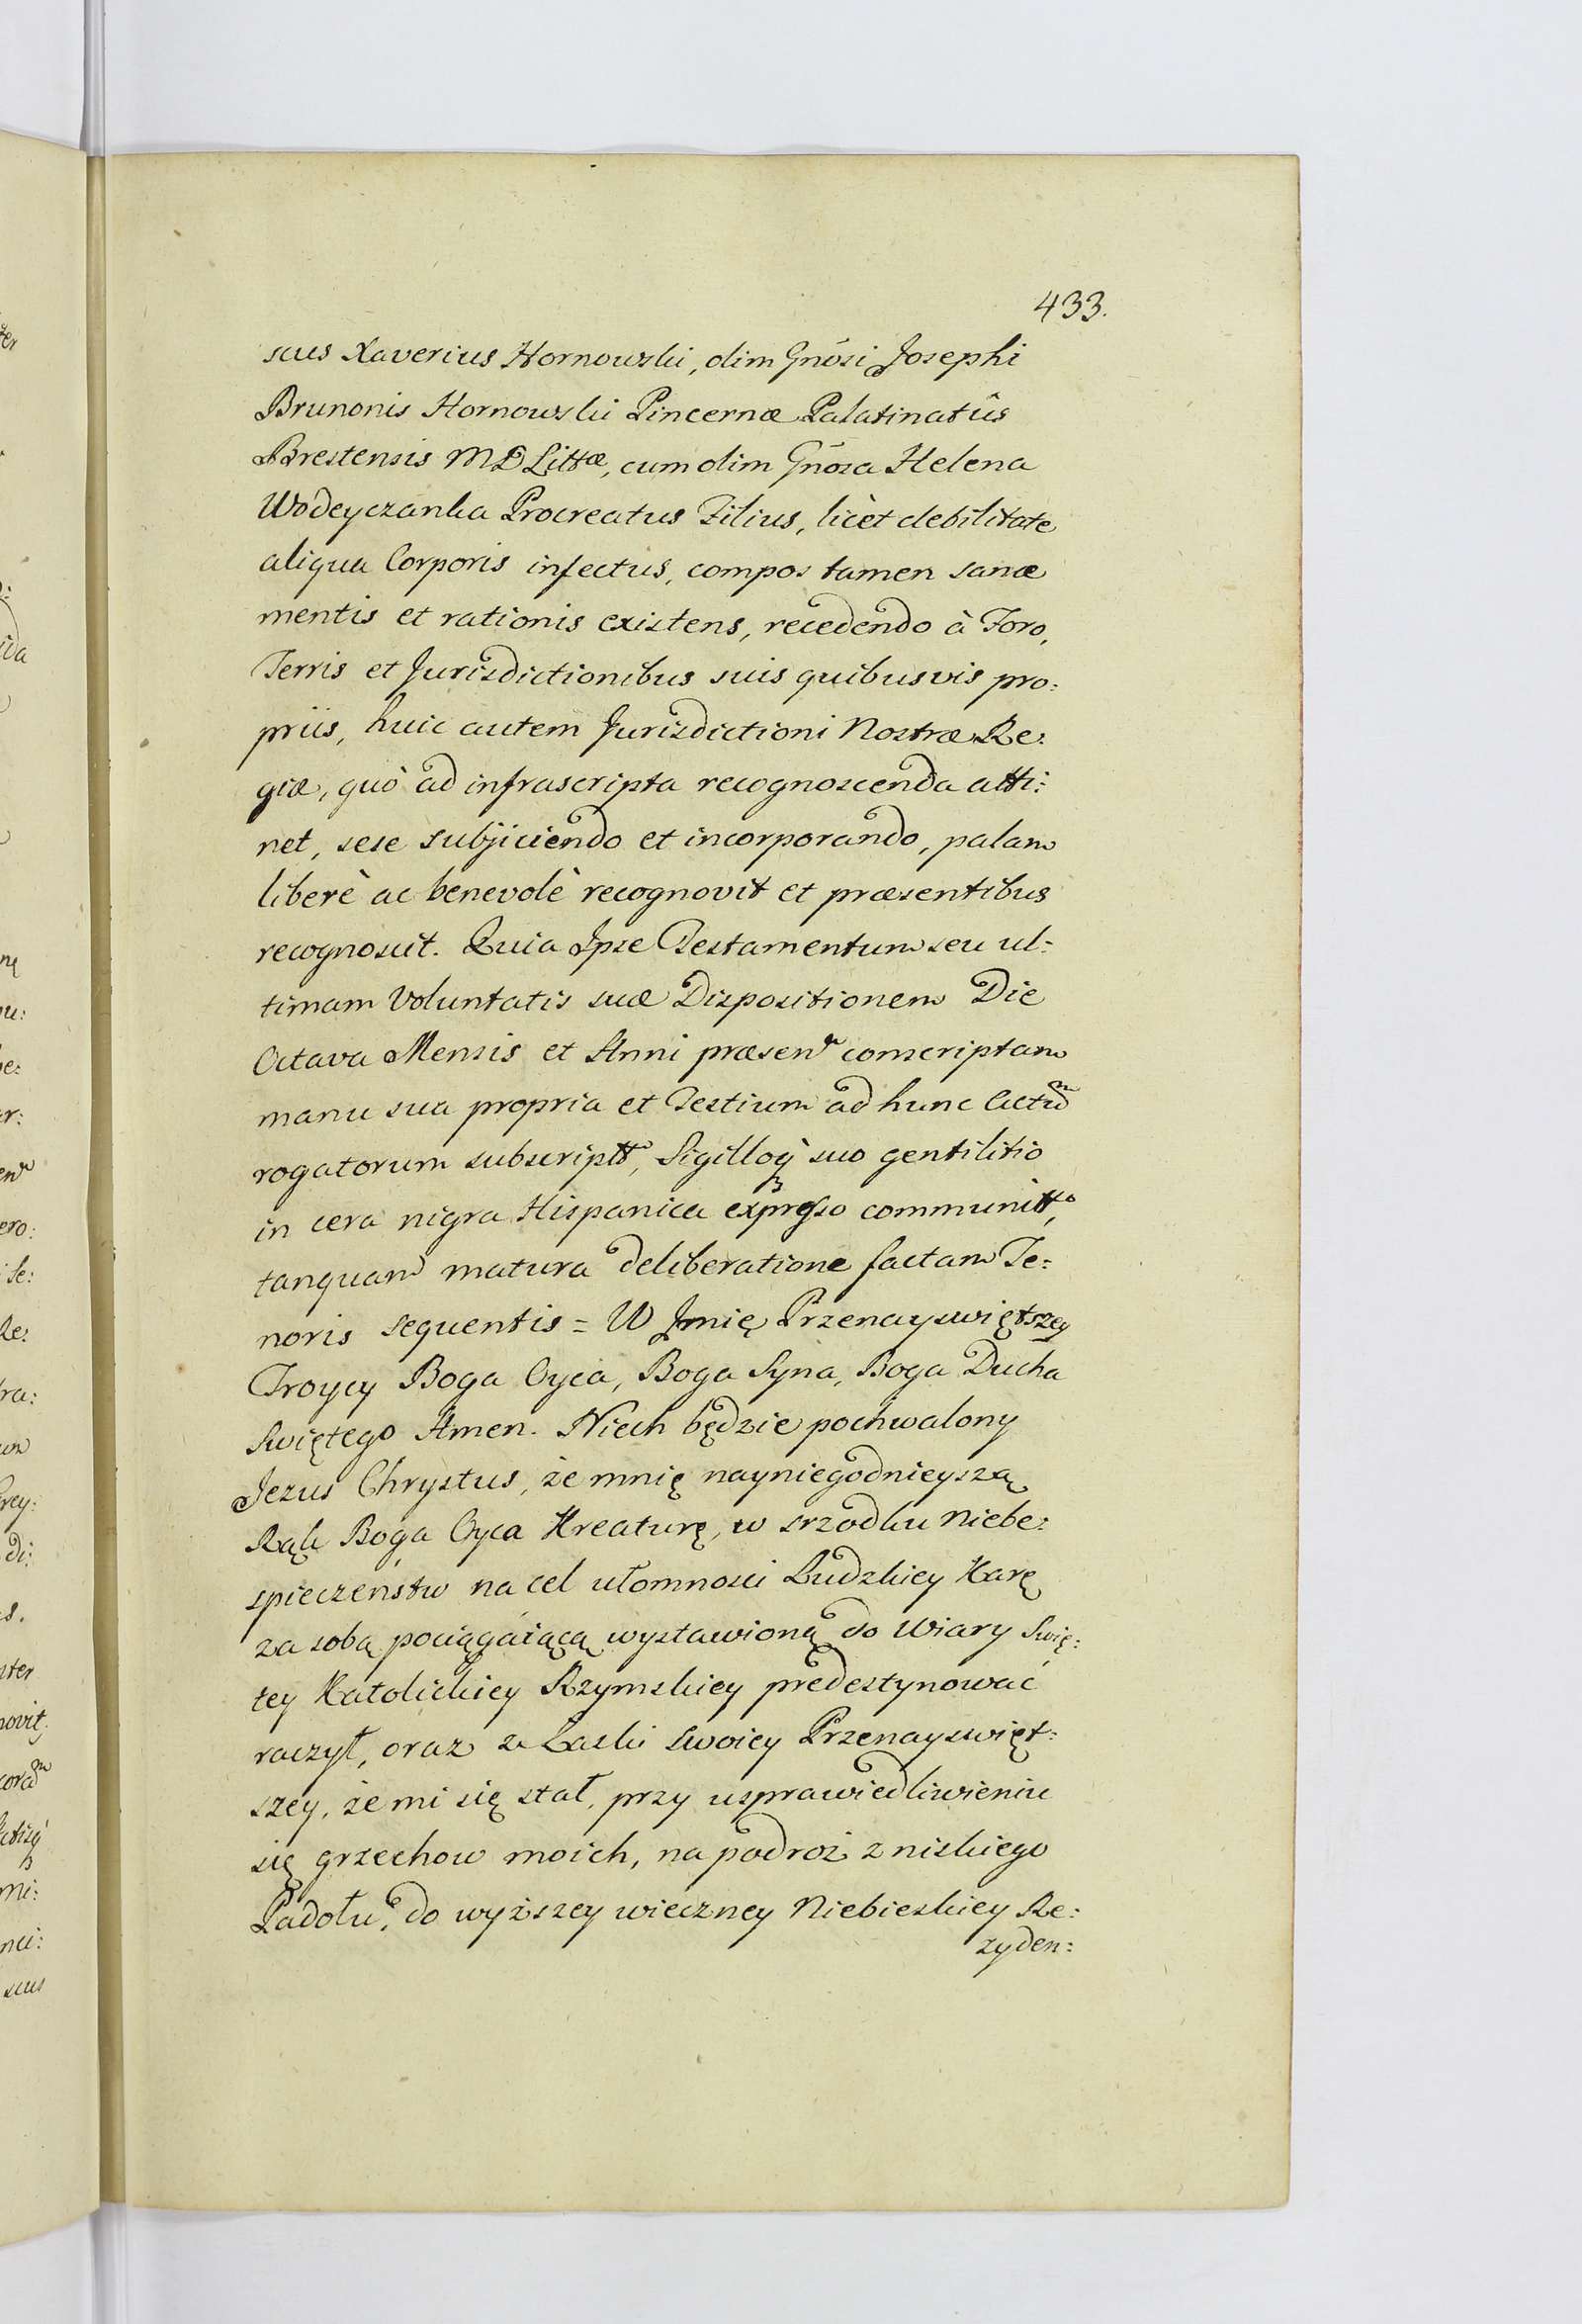 433.
scus Xaverius Hornowski, olim Gnōsi Josephi
Brunonis Hornowski Pincernæ Palatinatûs
Brestensis M D Littæ, cum olim Gnōsa Helena
Wodeyczanka Procreatus Filius, licèt debilitate
aliqua Corporis infectus, compos tamen sanæ
mentis et rationis existens, recedendo à Foro,
Terris et Jurisdictionibus suis quibusvis pro:
priis, huic autem Jurisdictioni Nostræ Re:
giæ, quò ad infrascripta recognoscenda atti:
net, sese subjiciendo et incorporando, palam
liberè ac benevolè recognovit et præsentibus
recognoscit. Quia Ipse Testamentum seu ul:
timam Voluntatis suæ Dispositionem Die
Octava Mensis et Anni præsenr conscriptam
manu sua propria et Testium ad hunc Actum
rogatorum subscriptt, Sigilloq suo gentilitio
in cera nigra Hispanica expresso communitto,
tanquam matura deliberatione factam Te:
noris sequentis = W Jmię Przenayswiętszey
Troycy Boga Oyca, Boga Syna, Boga Ducha
Swiętego Amen. Niech będzie pochwalony
Jezus Chrystus, że mnię nayniegodnieyszą
Rąk Boga Oyca Kreaturę, w srzodku Niebe:
spieczeństw na cel ułomnosci Ludzkiey Karę
za sobą pociągaiącą wystawioną do Wiary Swię:
tey Katolickiey Rzymskiey predestynować
raczył, oraz z Łaski swoiey Przenayswięt:
szey, że mi się stał, przy usprawiedliwieniu
się grzechow moich, na podroż z niskiego
Padołu, do wyższey wieczney Niebieskiey Re:
zyden: